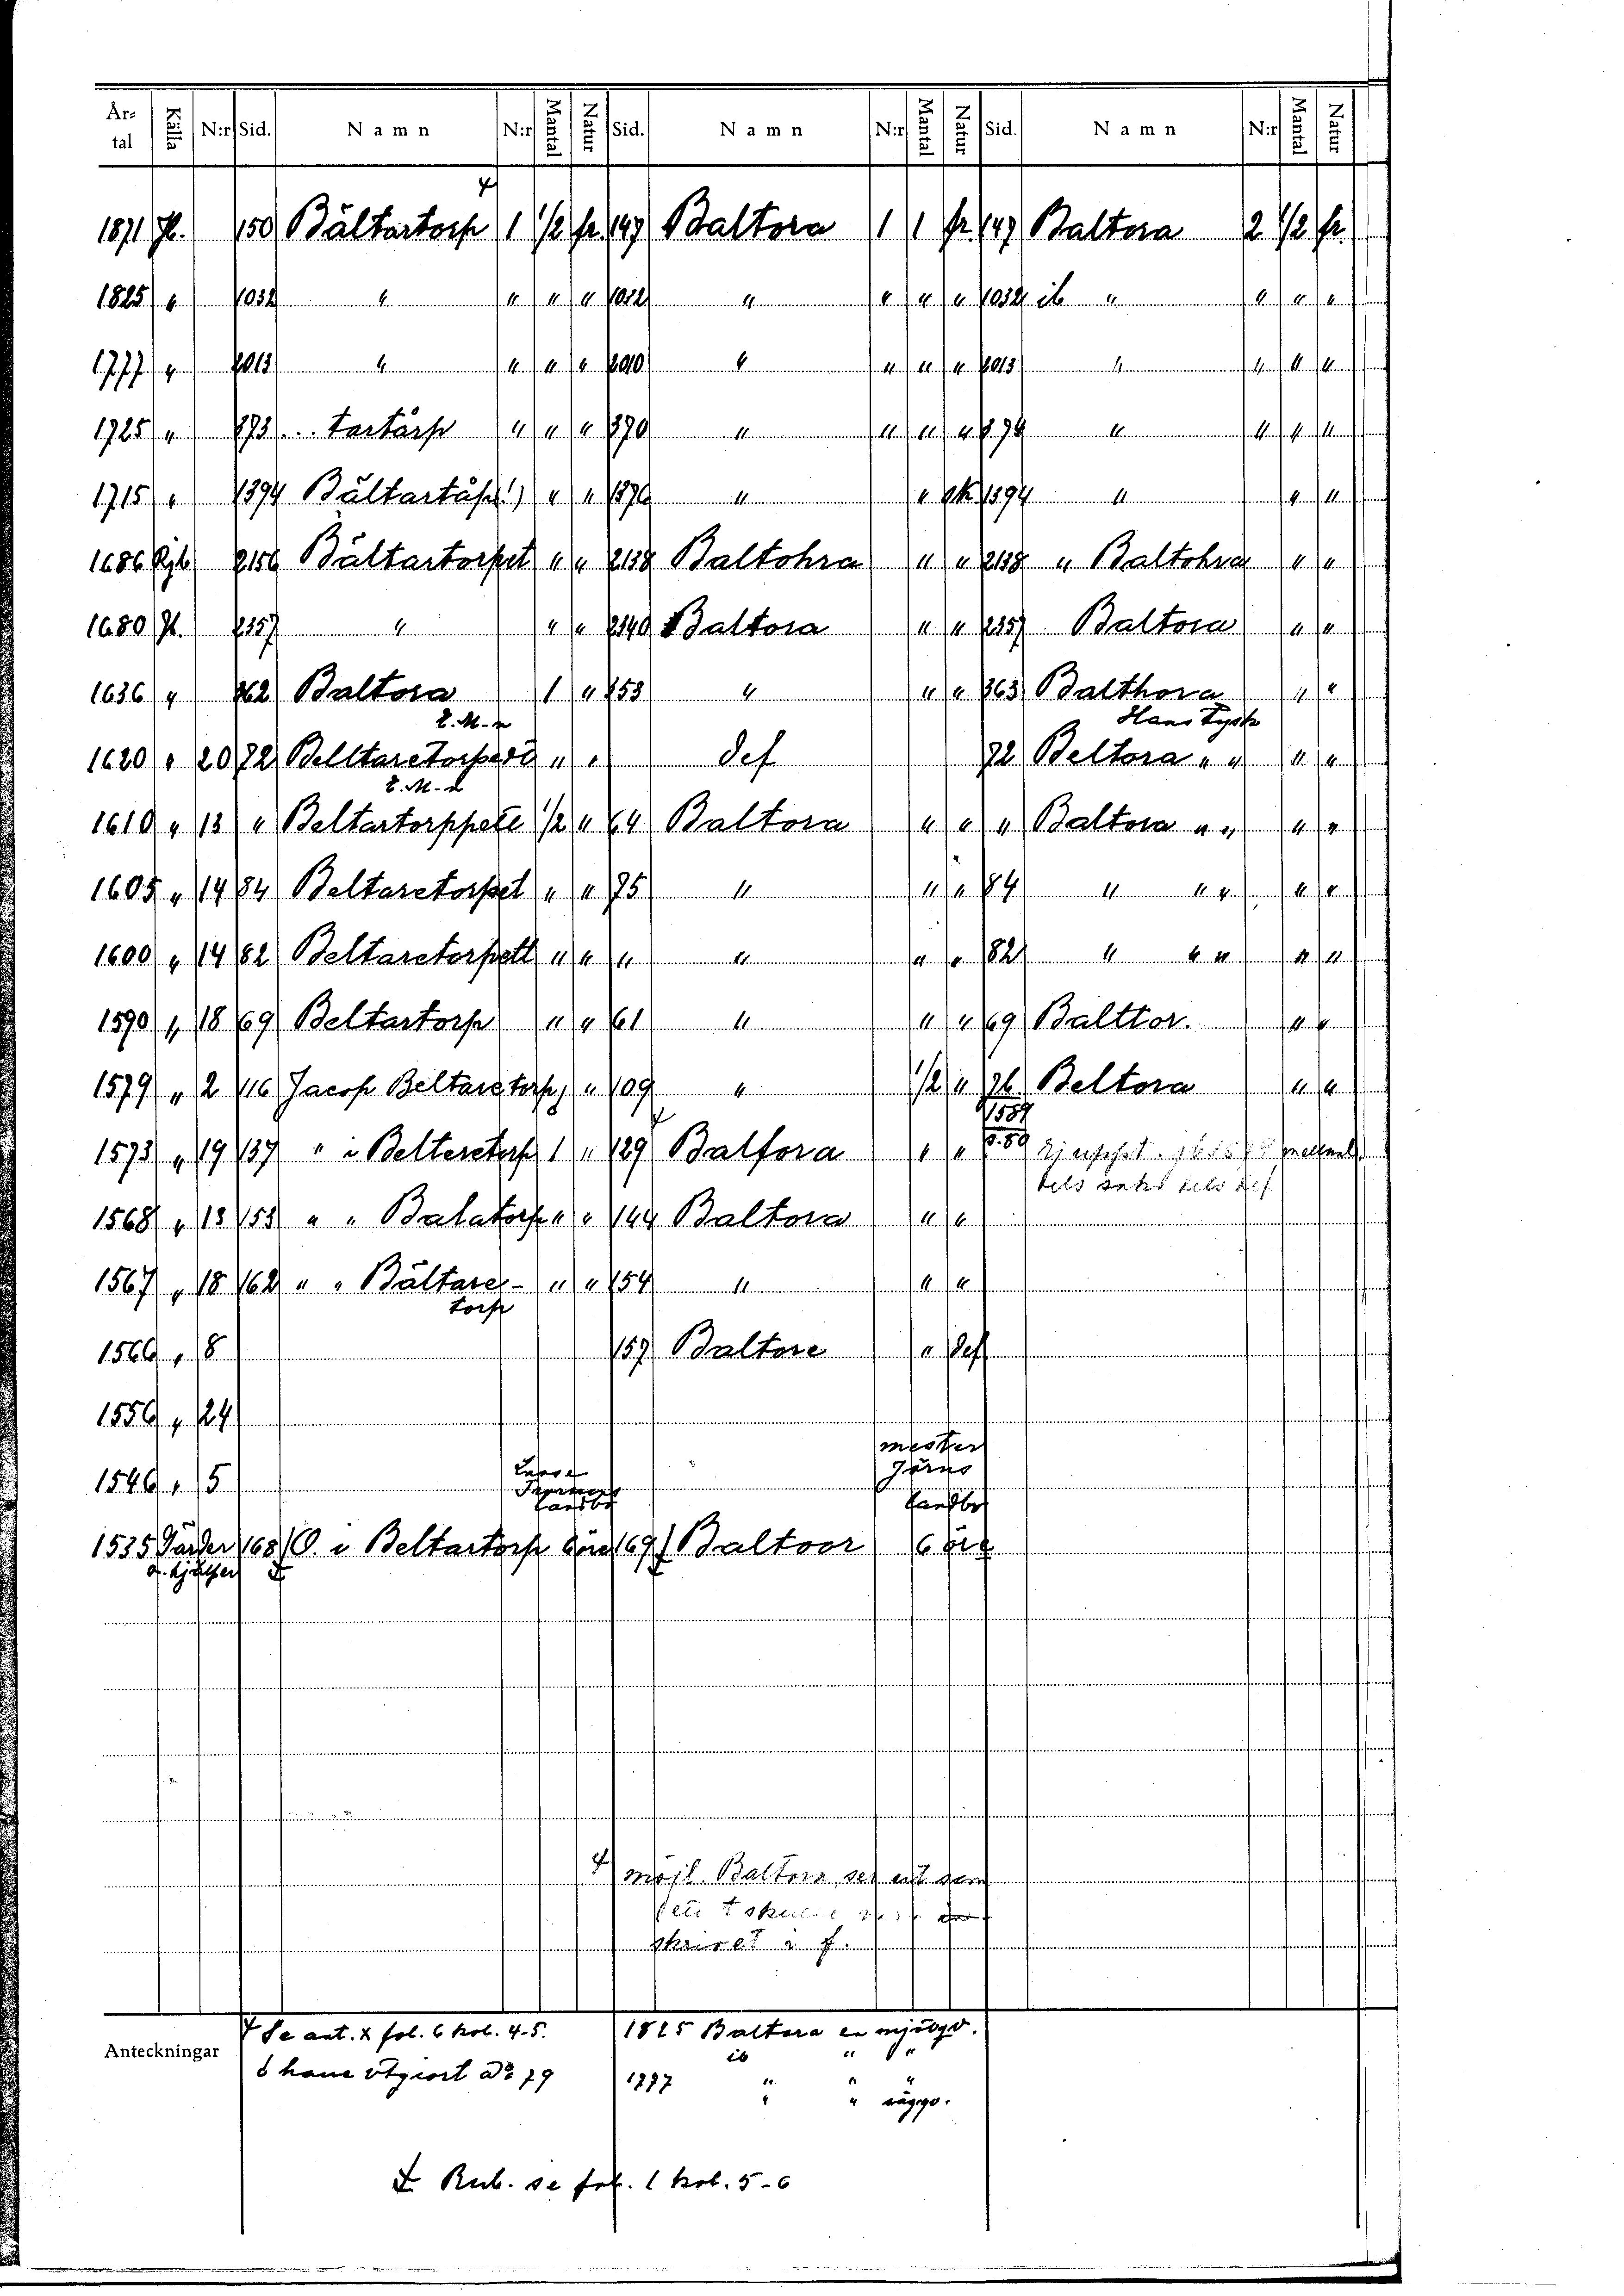 År-tal Källa N:r Sid. Namn N:r Mantal Natur Sid. Namn N:r Mantal Natur Sid. Namn N:r Mantal Natur
1871 Jb. 150 Bältartorp 1 1/2 fr. 147 Baltora 1 1 fr. 147 Baltora 2 1/2 fr.
1825 " 1032 " " " " 1032 " " " " 1032 ib " " " "
1777 " 2013 " " " " 2010 " " " " 2013 " " " "
1725 " 873 ... tartårp " " " 870 " " " " 874 " " " "
1715 " 1394 Bältartåp(!) " " 1376 " " sk 1394 " " "
1686 Rjb 2156 Bältartorpet " " 2138 Baltohra " " 2138 " Baltohra " "
1680 Jb. 2357 " " " 2340 Baltora " " 2357 Baltora " "
1636 " 362 Baltora 1 " 353 " " " 363 Balthora " "
Hans Tysk
1620 " 20 72 Belltaretorpett " " def 72 Beltora " " " "
1610 " 13 " Beltartorppete 1/2 " 64 Baltora " " " Baltora " " " "
1605 " 14 84 Beltaretorpet " " 75 " " " 84 " " " " "
1600 " 14 82 Beltaretorpett " " " " " " 82 " " " " "
1590 " 18 69 Beltartorp " " 61 " " " 69 Balttor. " "
1579 " 2 116 Jacop Beltaretorp " 109 " 1/2 " 76 Beltora " "
1589
1573 " 19 137 " i Belteretorp 1 " 129 Balfora " " s. 89 Ej uppft.
dels def
1568 " 13 153 " " Balatorp " " 144 Baltora " "
1567 " 18 162 " " Bältare- " " 154 " " "
torp
1566 " 8 157 Baltore " def
1556 " 24
mester
1546 " 5 Lasse Jörns
landbo landbo
1535 Gärder 168 O. i Beltartorp 6 öre 169 Baltoor 6 öre
o. hjälper
möjl. Baltora, ser ut som
skrivet i f.
Anteckningar
Se ant. x fol. 6 kol. 4-5. 1825 Baltora en mjölqv.
ib " "
haue vtgiort a:o 79 1777 " " "
" " sågqv.
Rub. se fol. 1 kol. 5-6